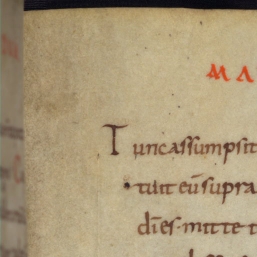 MA
Tunc assumpsit
tuit eū supra
dīes · mitte t